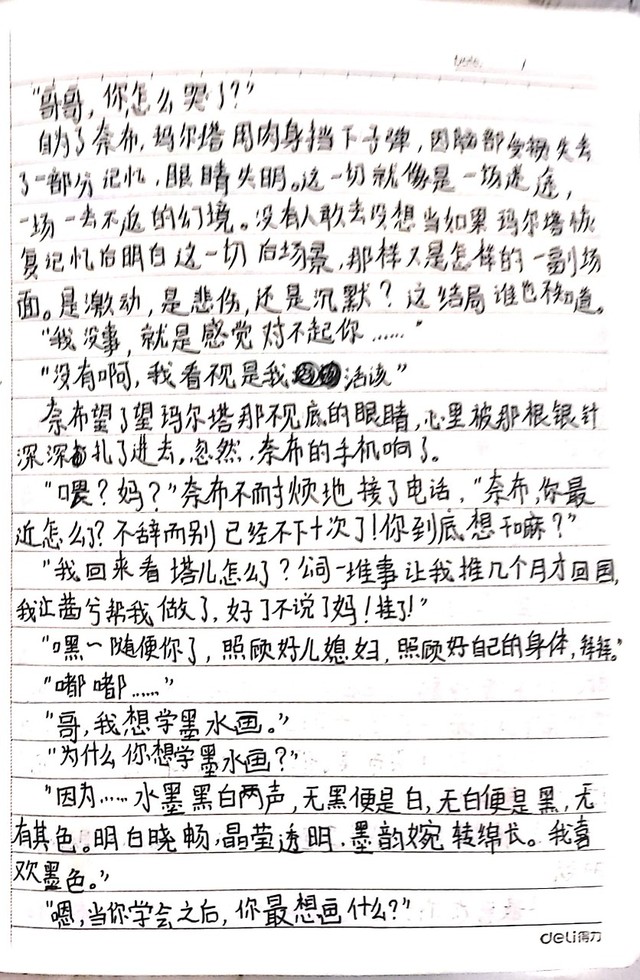 “哥哥，你怎么哭了？”
自为了奈布，玛尔塔用肉身挡下子弹，因脑部受损失去
了一部分记忆，眼睛失明。这一切就像是一场迷途，
一场一去不返的幻境。没有人敢去设想当如果玛尔塔恢
复记忆后明白这一切后场景，那样又是怎样的一副场
面。是激动，是悲伤，还是沉默？这结局谁也不知道。
“我没事，就是感觉对不起你……”
“没有啊，我看不见是我活该”
奈布望了望玛尔塔那不见底的眼睛，心里被那根银针
深深扎了进去，忽然，奈布的手机响了。
“喂？妈？”奈布不耐烦地接了电话，“奈布，你最
近怎么了？不辞而别已经不下十次了！你到底想干嘛？”
“我回来看塔儿怎么了？公司一堆事让我推几个月才回国，
我让茜兮帮我做了，好了不说了妈！挂了！”
“嘿~随便你了，照顾好儿媳妇，照顾好自己的身体，拜拜。”
“嘟嘟……”
“哥，我想学墨水画。”
“为什么你想学墨水画？”
“因为……水墨黑白两声，无黑便是白，无白便是黑，无
有其色。明白晓畅，晶莹透明，墨韵婉转绵长。我喜
欢墨色。”
“嗯，当你学会之后，你最想画什么？”
deli得力